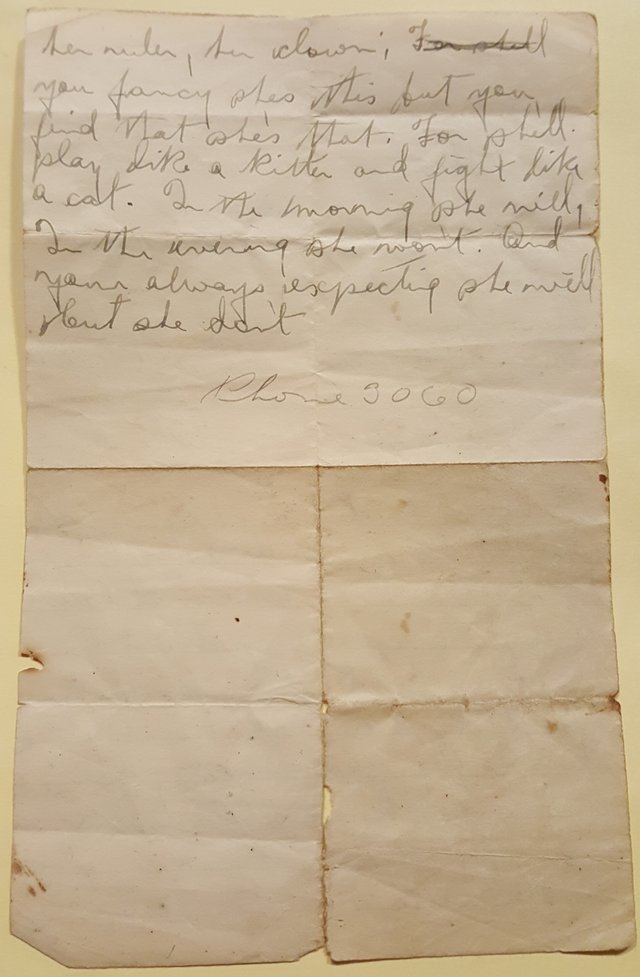 her ruler, her clown, For shell
you fancy she's this but you
find that she's that. For she'll
play like a kitten and fight like
a cat. In the morning she will,
In the evening she won't. And
your always expecting she will
But she don't
Phone 3060